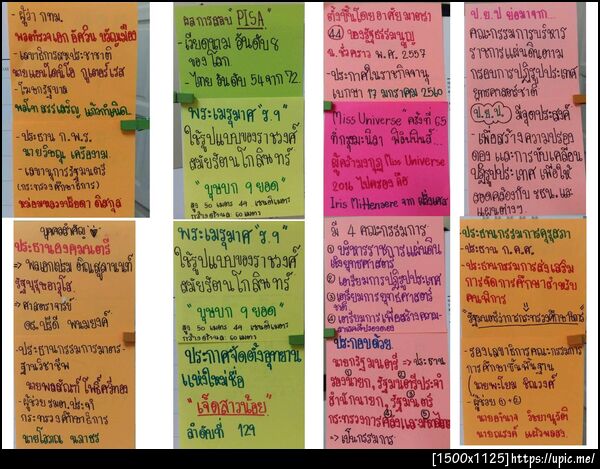 ผู้ว่า กทม.
พลตำรวจเอก อัศวิน ขวัญเมือง
-เลขาธิการสหประชาชาติ
นายแอนโตนิโอ กูเตอร์เรส
-โฆษกรัฐบาล
พลโท สรรเสริญ แก้วกำเนิด
-ประธาน ก.พ.ร.
นายวิษณุ เครืองาม
-เลขานุการรัฐมนตรี
(กระทรวงศึกษาธิการ)
หม่อมหลวงปริยดา ดิศกุล
ผลการสอบ "PISA"
-เวียดนาม อันดับ 8
ของโลก
-ไทย อันดับ 54 จาก 72
พระเมรุมาศ "ร.9"
ใช้รูปแบบของราชวงศ์
สมัยรัตนโกสินทร์
"บุษบก 9 ยอด"
สูง 50 เมตร 49 เซนติเมตร
กว้างด้านละ 60 เมตร
ตั้งขึ้นโดยอาศัยมาตรา
44 ของรัฐธรรมนูญ
ฉ.ชั่วคราว พ.ศ. 2557
-ประกาศในราชกิจจานุ
เบกษา 17 มกราคม 2560
"Miss Universe" ครั้งที่ 65
ที่กรุงมะนิลา ฟิลิปปินส์...
ผู้คว้ามงกุฎ Miss Universe
2016 ไปครอง คือ
Iris Mittenaere จาก ฝรั่งเศส
ป.ย.ป ย่อมาจาก...
คณะกรรมการบริหาร
ราชการแผ่นดินตาม
กรอบการปฏิรูปประเทศ
ยุทธศาสตร์ชาติ
ป.ย.ป. มีจุดประสงค์
-เพื่อสร้างความปรอง
ดอง และการขับเคลื่อน
ปฏิรูปประเทศ เพื่อให้
สอดคล้องกับ ยชน. และ
แผนต่างๆ.
บุคคลสำคัญ
ประธานองคมนตรี
⇒ พลเอกเปรม ติณสูลานนท์
รัฐบุรุษอาวุโส.
⇒ ศาสตราจารย์
ดร. ปรีดี พนมยงค์
-ประธานกรรมการมาตร-
ฐานวิชาชีพ
นายพลสัณห์ โพธิ์ศรีทอง
-ผู้ช่วย รมต.ประจำ
กระทรวงศึกษาธิการ
นายโสภณ นภาธร
พระเมรุมาศ "ร.9"
ใช้รูปแบบของราชวงศ์
สมัยรัตนโกสินทร์
"บุษบก 9 ยอด"
สูง 50 เมตร 49 เซนติเมตร
กว้างด้านละ 60 เมตร
ประกาศจัดตั้งอุทยาน
แห่งใหม่ชื่อ
"เจ็ดสาวน้อย"
ลำดับที่ 129
มี 4 คณะกรรมการ
① บริหารราชการแผ่นดิน
เชิงยุทธศาสตร์
② เตรียมการปฏิรูปประเทศ
③ เตรียมการยุทธศาสตร์
ชาติ
④ เตรียมการเพื่อสร้างความ-
สามัคคีปรองดอง
ประกอบด้วย
นายกรัฐมนตรี ⇒ ประธาน
รองนายก, รัฐมนตรีประจำ
สำนักนายก, รัฐมนตรี
⇒ เป็นกรรมการ
ประธานกรรมการคุรุสภา
-ประธาน ก.ค.ศ.
-ประธานกรรมการส่งเสริม
การจัดการศึกษาสำหรับ
คนพิการ
รัฐมนตรีว่าการกระทรวงศึกษาธิการ
-รองเลขาธิการคณะกรรมการ
การศึกษาขั้นพื้นฐาน
นายพะโยม ชิณวงศ์
-ผู้ช่วย
นายอำนาจ วิชยานุวัติ
นายณรงค์ แผ้วพลสง
[1500x1125]https://upic.me/